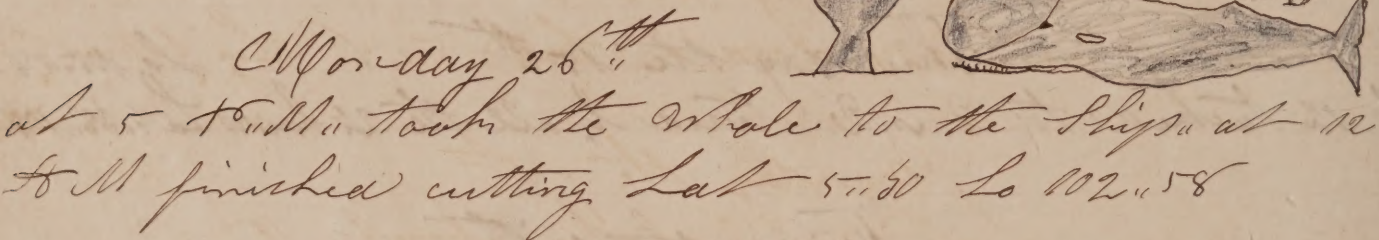 Monday 26th
at 5 P.M. took the Whale to the Ship. at 12
A M finished cutting Lat 5..50 Lo 102..58